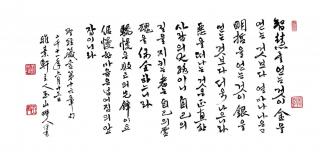 智慧를 얻는 것이 金을
얻는 것보다 얼마나 나은고
明哲을 얻는 것이 銀을
얻는 것보다 더욱 나으니라
惡을 떠나는 것은 正直한
사람의 大路이니 自己의
길을 지키는 者는 自己의 靈
魂을 保全하느니라
驕慢은 敗亡의 先鋒이요
倨慢한 마음은 넘어짐의 앞
잡이니라
箴言 第十六章